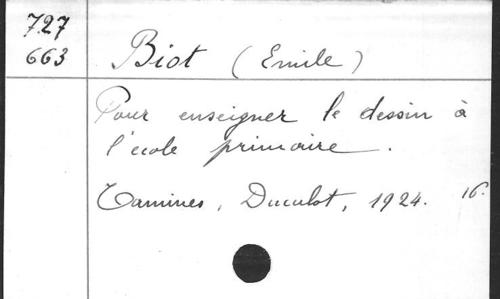 727
663
Biot (Emile)
Pour enseigner le dessin à
l'école primaire.
Tamines, Duculot, 1924. 16.